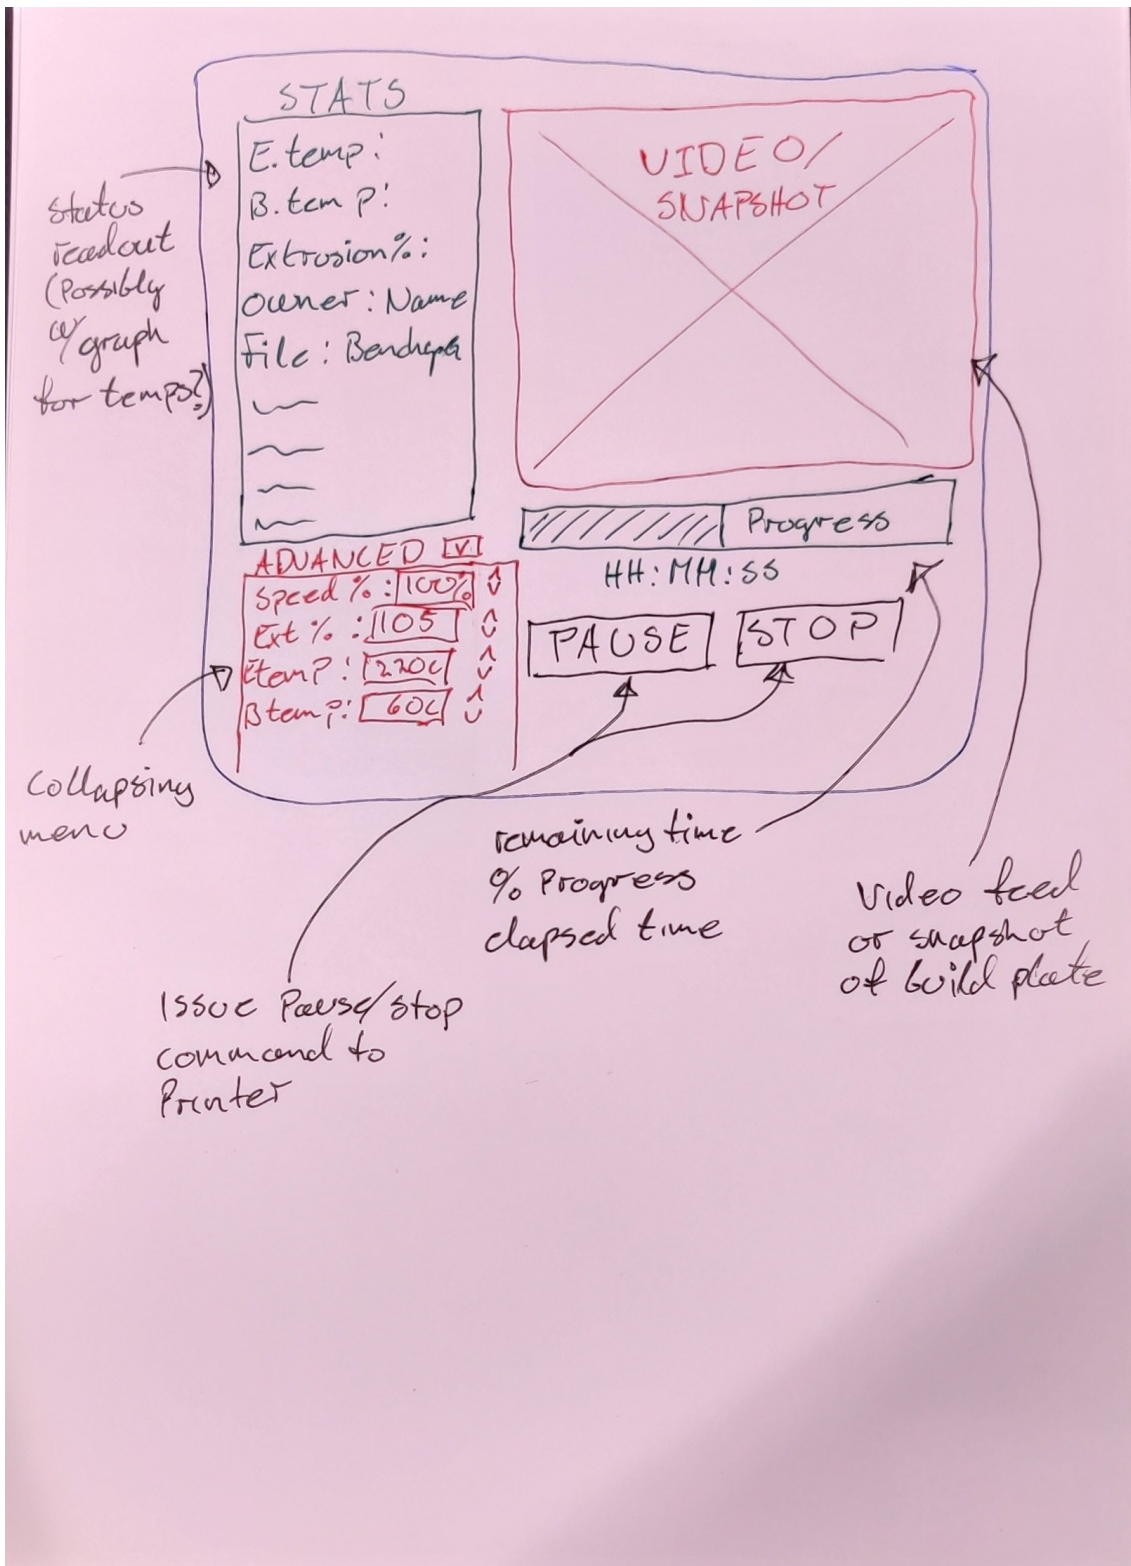 STATS
E.temp:
B.temp:
Extrusion%:
Owner: Name
File:
VIDEO/
SNAPSHOT
Status
readout
(Possibly
w/ graph
for temps?)
Progress
HH:MM:SS
PAUSE
STOP
ADVANCED V
Speed %: 100%
Ext %: 105
Etemp: 220C
Btemp: 60C
Collapsing
menu
remaining time
% Progress
elapsed time
Video feed
or snapshot
of build plate
Issue Pause/stop
command to
Printer